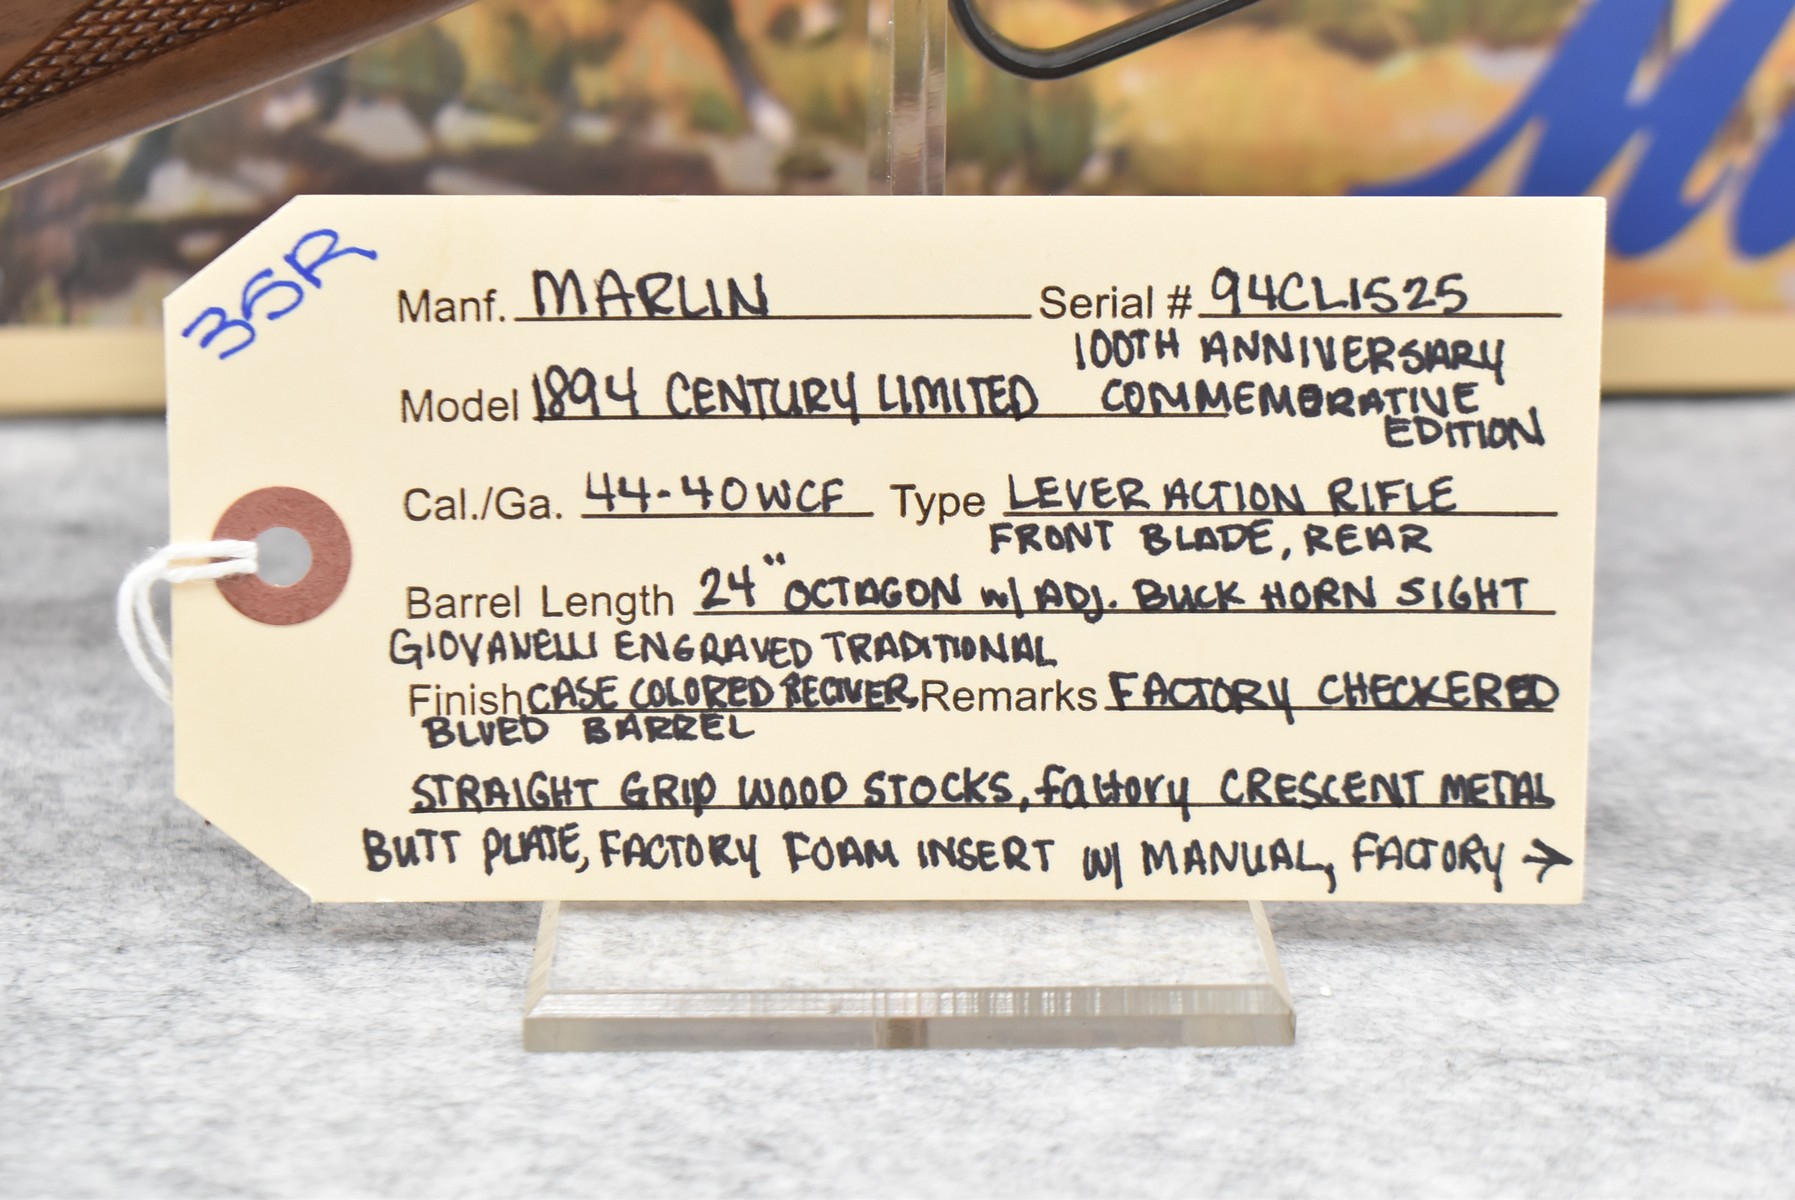 35R
Manf. MARLIN Serial # 94CL1525
100TH ANNIVERSARY
Model 1894 CENTURY LIMITED COMMEMORATIVE
EDITION
Cal./Ga. 44-40WCF Type LEVER ACTION RIFLE
FRONT BLADE, REAR
Barrel Length 24" OCTAGON w/ ADJ. BUCK HORN SIGHT
GIOVANELLI ENGRAVED TRADITIONAL
Finish CASE COLORED RECIVER, Remarks FACTORY CHECKERED
BLUED BARREL
STRAIGHT GRIP WOOD STOCKS, factory CRESCENT METAL
BUTT PLATE, FACTORY FOAM INSERT W/ MANUAL, FACTORY →